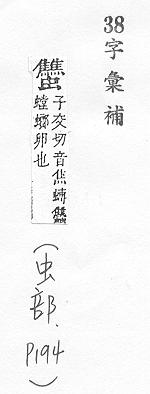 38字彙補
子交切音焦䗚
螳螂卵也
(虫部、P194)